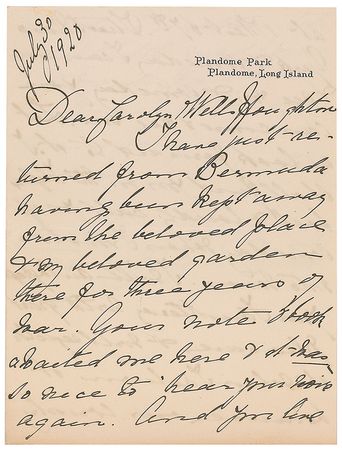 July 30
1920
Plandome Park
Plandome, Long Island
Dear Carolyn Wells Houghton
I have just re-
turned from Bermuda
having been kept away
from the beloved place
& my beloved garden
there for three years of
war. Your note & book
awaited me here & it was
so nice to hear your voice
again. And you live